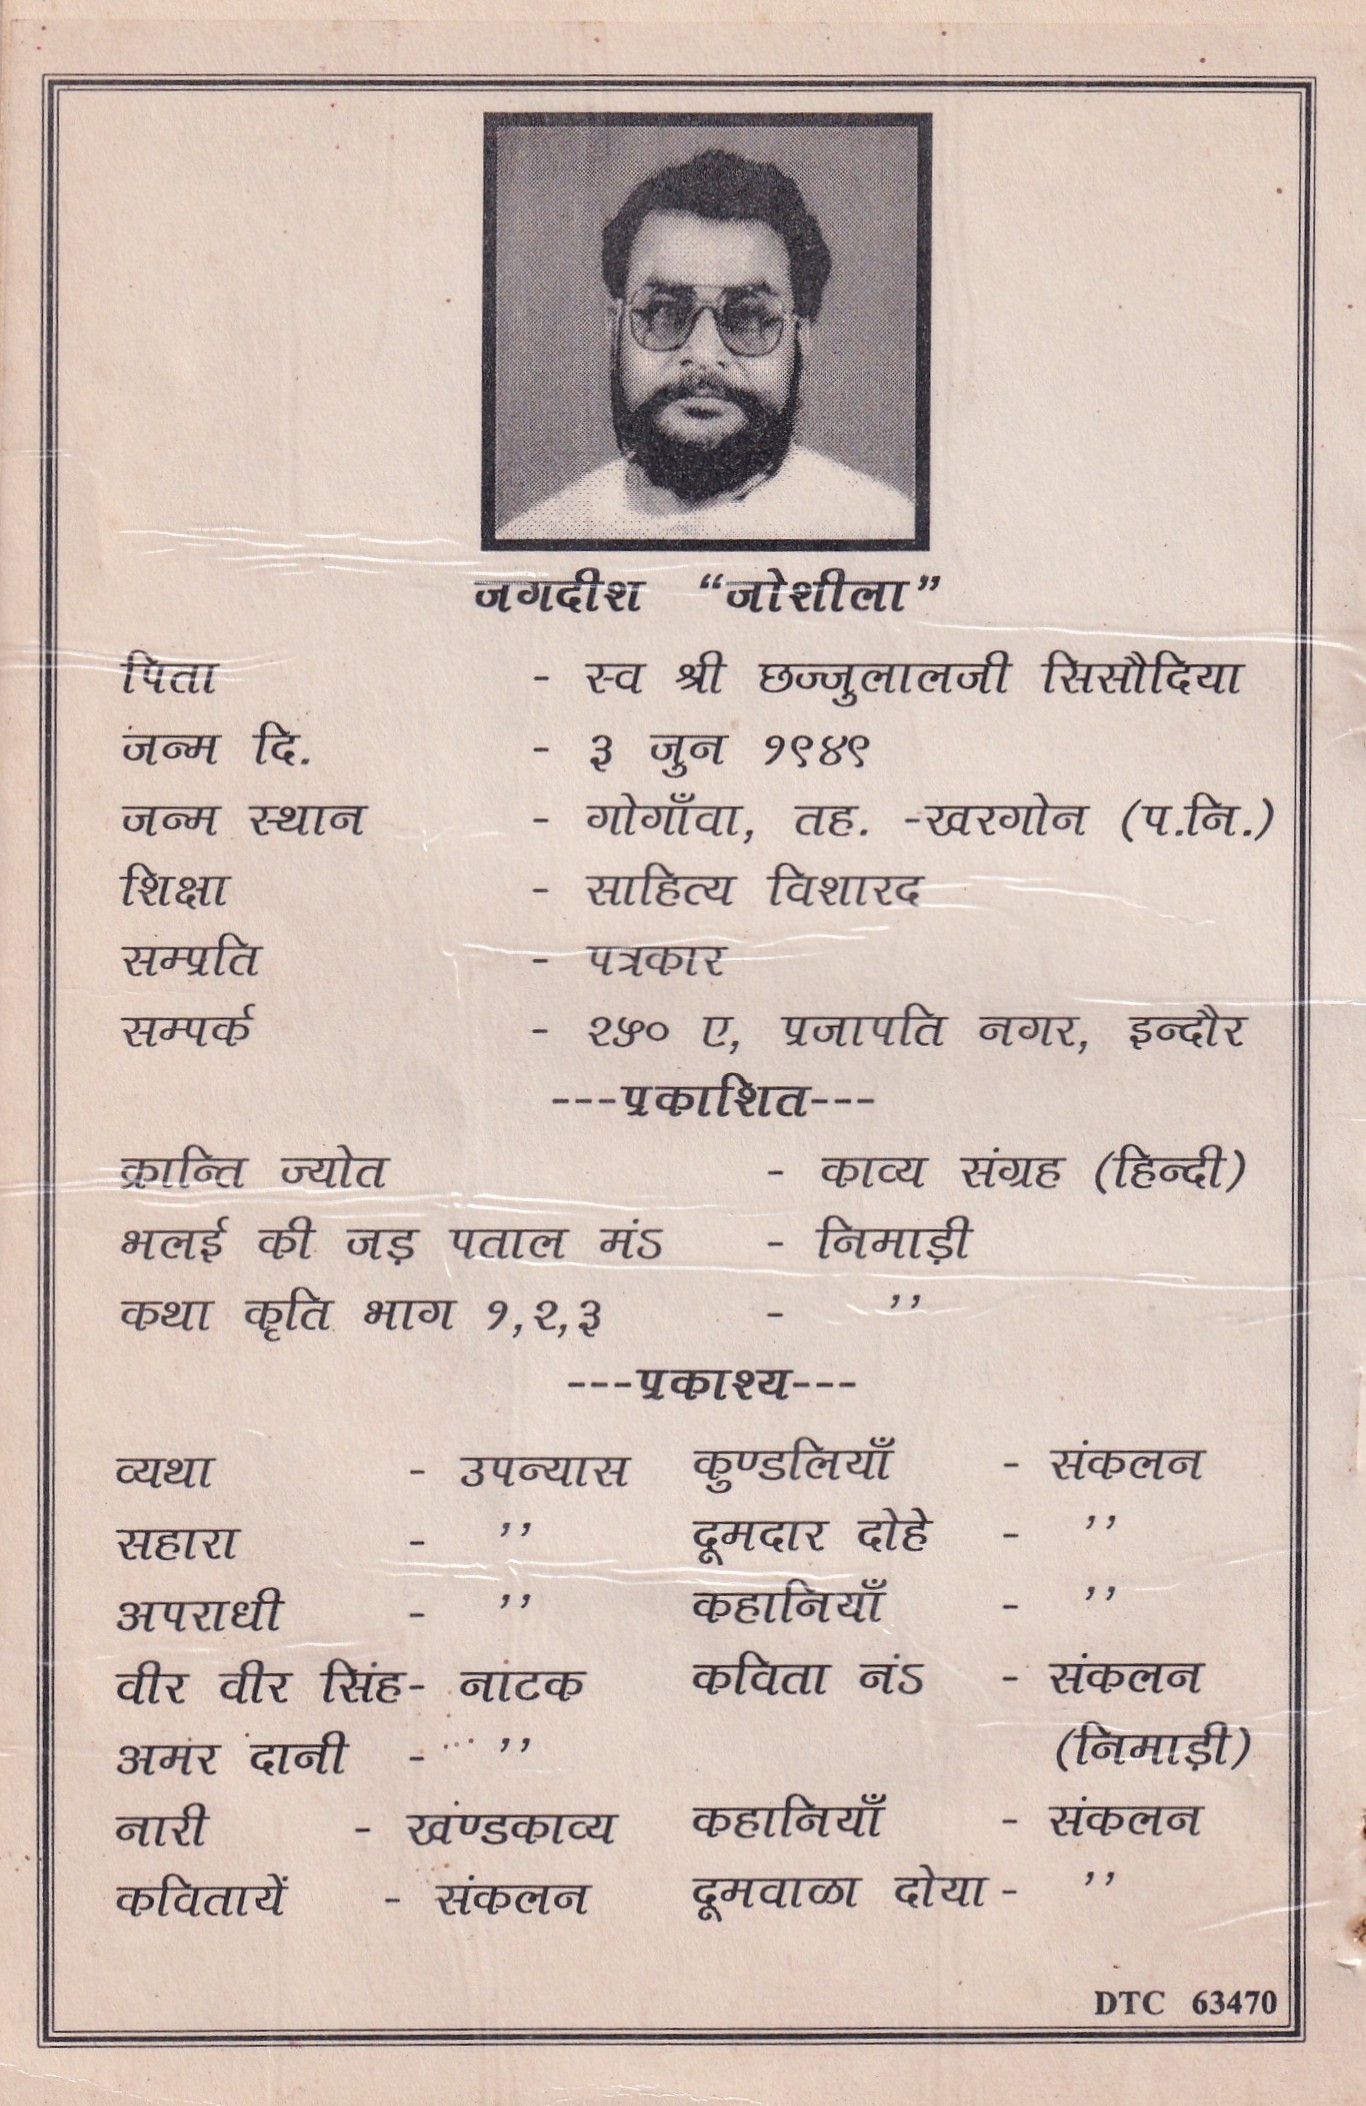 जगदीश “जोशीला”
पिता - स्व श्री छज्जुलालजी सिसौदिया
जन्म दि. - ३ जुन १९४९
जन्म स्थान - गोगाँवा, तह. -खरगोन (प.नि.)
शिक्षा - साहित्य विशारद
सम्प्रति - पत्रकार
सम्पर्क - २५० ए, प्रजापति नगर, इन्दौर
---प्रकाशित---
क्रान्ति ज्योत - काव्य संग्रह (हिन्दी)
भलई की जड़ पताल मंऽ - निमाड़ी
कथा कृति भाग १,२,३ - ’’
---प्रकाश्य---
व्यथा - उपन्यास
सहारा - ’’
अपराधी - ’’
वीर वीर सिंह- नाटक
अमर दानी - ’’
नारी - खण्डकाव्य
कवितायें - संकलन
कुण्डलियाँ - संकलन
दूमदार दोहे - ’’
कहानियाँ - ’’
कविता नंऽ - संकलन
(निमाड़ी)
कहानियाँ - संकलन
दूमवाळा दोया - ’’
DTC 63470